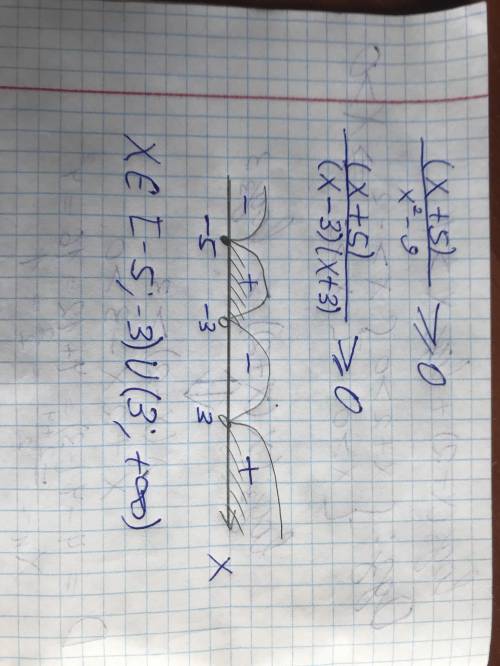 (x+5)/(x²-9) ≥ 0
(x+5)/((x-3)(x+3)) ≥ 0
- + - +
-5 -3 3 x
x∈[-5;-3)∪(3;+∞)